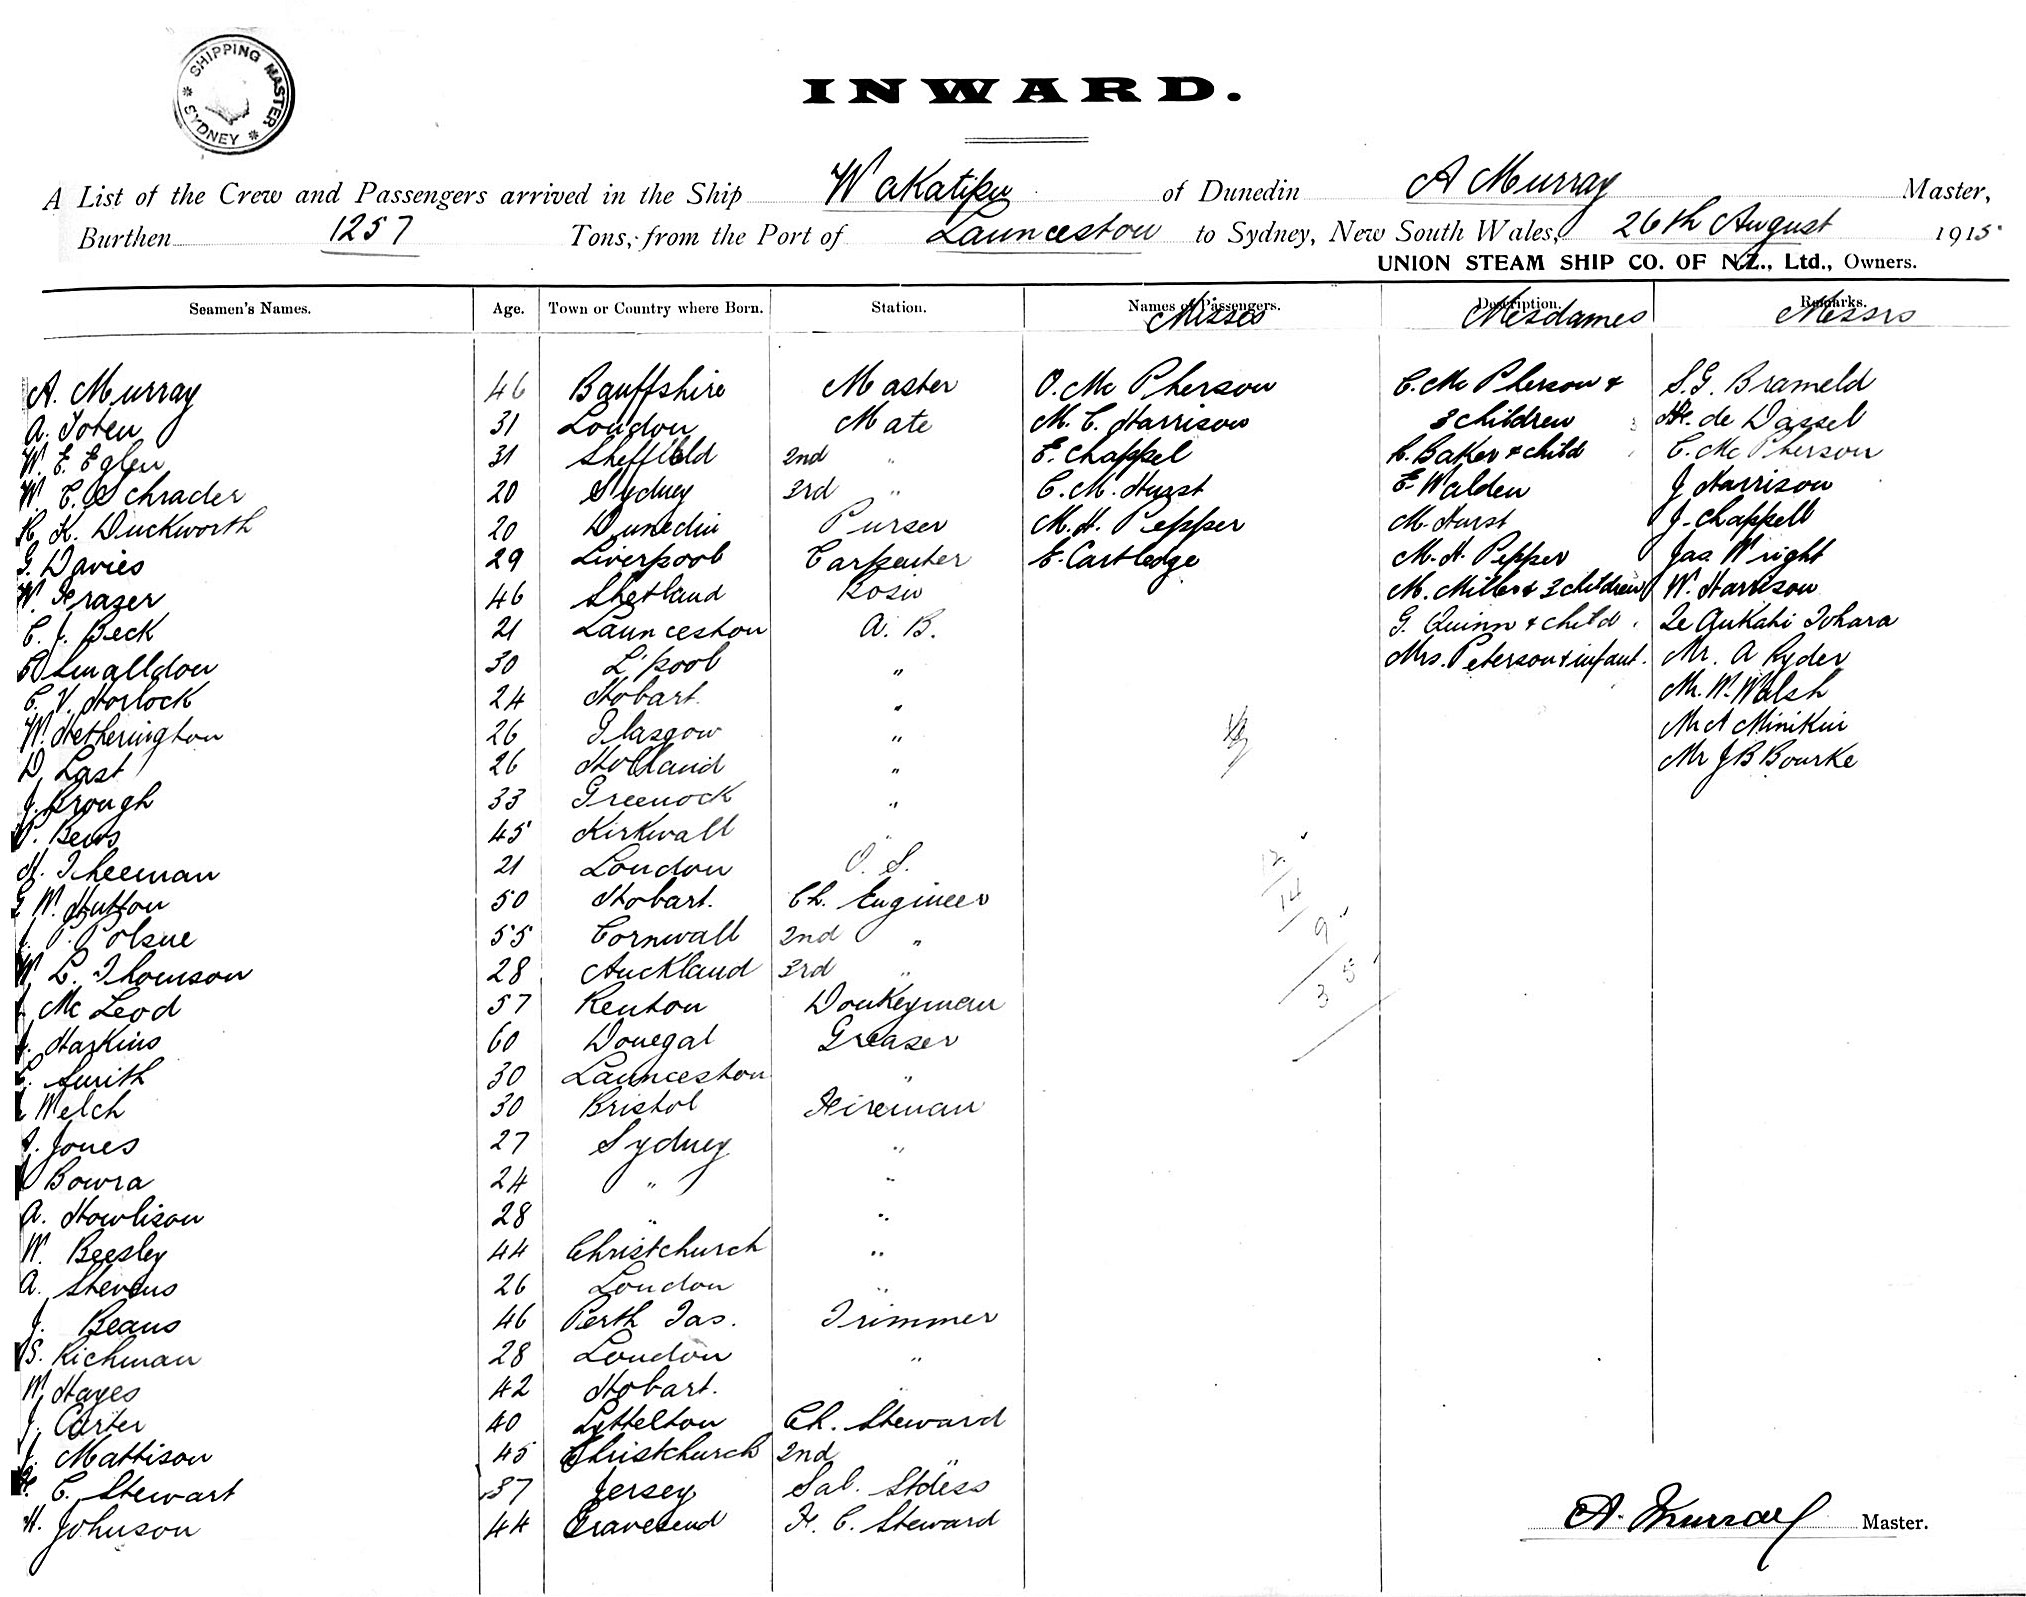 SHIPPING MASTER
SYDNEY
INWARD.
A List of the Crew and Passengers arrived in the Ship Wakatipu of Dunedin A Murray Master,
Burthen 1257 Tons, from the Port of Launceston to Sydney, New South Wales, 26th August 1915
UNION STEAM SHIP CO. OF N.Z., Ltd., Owners.
Seamen's Names. Age. Town or Country where Born. Station. Names of Passengers. Description. Remarks.
Misses Mesdames Messrs
A. Murray 46 Banffshire Master O. Mc Pherson C. Mc Pherson & S. G. Brameld
A. Toten 31 London Mate M. C. Harrison 3 children de Dassel
W. E. Eglen 31 Sheffield 2nd " E. Chappel Baker & child C. Mc Pherson
W. C. Schrader 20 Sydney 3rd " C. M. Hurst E Walden J Harrison
R. K. Duckworth 20 Dunedin Purser M. H. Pepper M. Hurst J. Chappell
G. Davies 29 Liverpool Carpenter E. Cartledge M. H. Pepper Jas. Wright
W. Frazer 46 Shetland Bosin M. Miller & 2 children W. Harrison
C. J. Beck 21 Launceston A. B. G. Quinn & child Te Aukahi Tohara
Smalldon 30 L'pool " Mrs. Peterson & infant. Mr. A Ryder
C. V. Horlock 24 Hobart. " Mr. W. Walsh
W. Hetherington 26 Glasgow " Mr A Minikin
D. Last 26 Holland " Mr J B Bourke
J. Brough 33 Greenock "
Bews 45 Kirkwall "
H. Theeman 21 London O. S.
G W. Hutton 50 Hobart. Ch. Engineer
P. Polsue 55 Cornwall 2nd "
W. L. Thomson 28 Auckland 3rd "
Mc Leod 57 Renton Donkeyman
Harkins 60 Donegal Greaser
C. Smith 30 Launceston "
Welch 30 Bristol Fireman
Jones 27 Sydney "
Bowra 24 " "
A. Howlison 28 " "
W. Beesley 44 Christchurch "
A. Stevens 26 London "
J. Beans 46 Perth Tas. Trimmer
S. Richman 28 London "
W. Hayes 42 Hobart. "
J. Carter 40 Lyttelton Ch. Steward
J. Mattison 45 Christchurch 2nd "
C. Stewart 37 Jersey Sal. Stdess
H. Johnson 44 Gravesend F. C. Steward
12
14
9
35
A. Murray Master.